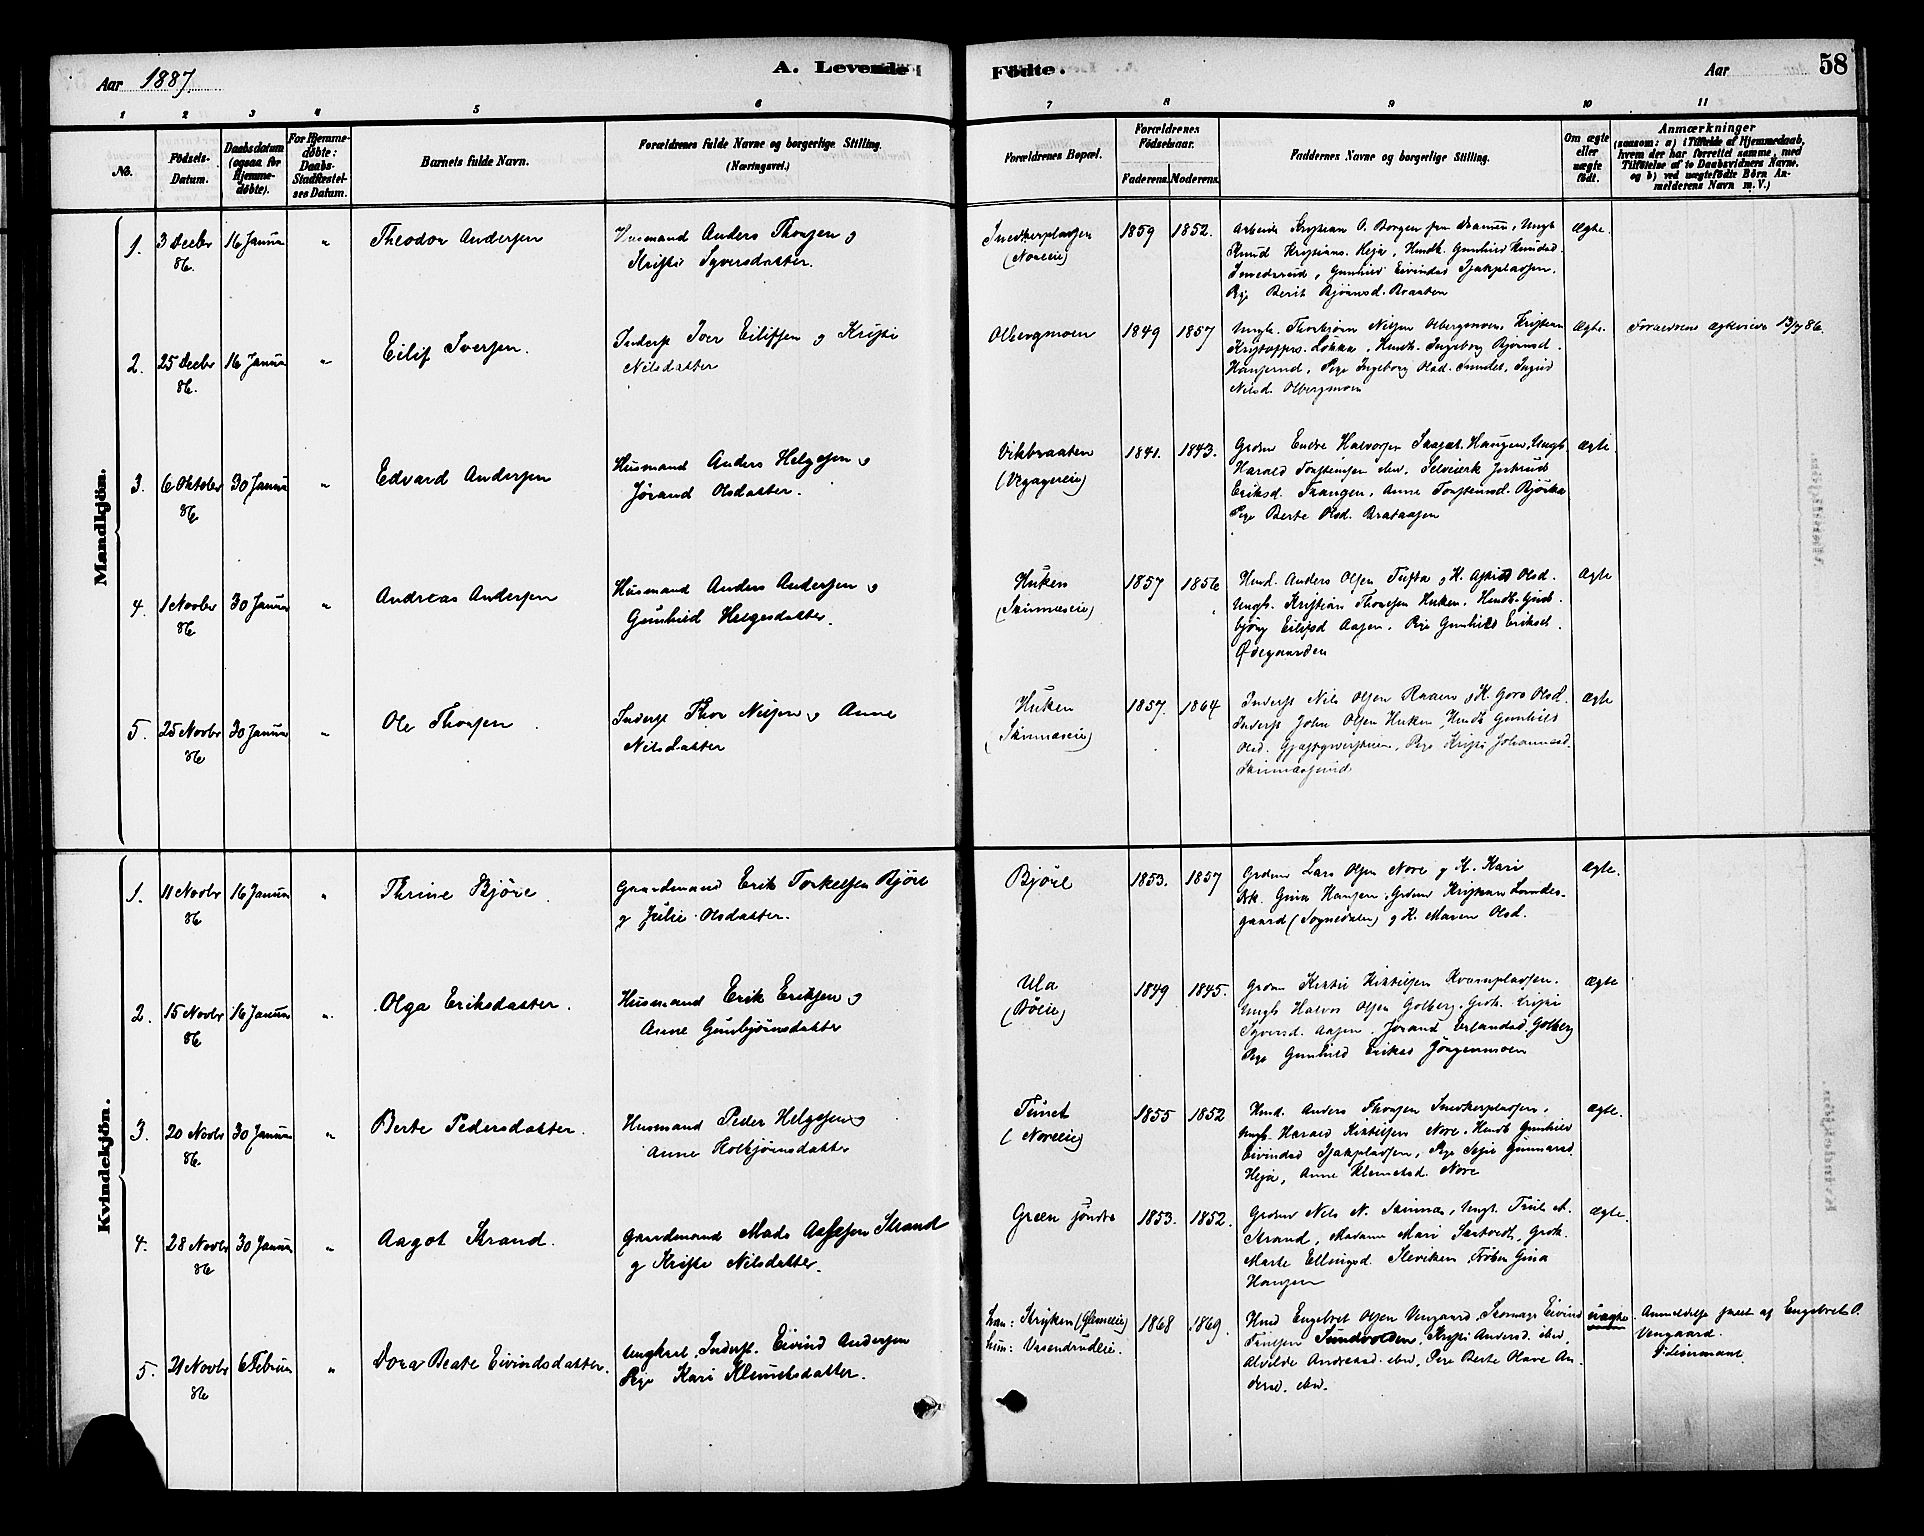 Aar 1887.
A. Levende
Fødte.
Aar
58
1 2 3 4 5 6 7 8 9 10 11
No.
Fødsels-Datum.
Daabsdatum (ogsaa for Hjemmedøbte).
For Hjemmedøbte: Daabs-Stadfæstelses Datum.
Barnets fulde Navn.
Forældrenes fulde Navne og borgerlige Stilling.
(Næringsvei.)
Forældrenes Bopæl.
Forældrenes Fødselsaar.
Faderens. Moderens.
Faddernes Navne og borgerlige Stilling.
Om ægte eller uægte født.
Anmærkninger
(saasom: a) i Tilfælde af Hjemmedaab, hvem der har forrettet samme, med Tilføielse af to Daabsvidners Navne, og b) ved uægtefødte Børn Anmelderens Navn m. V.)
Mandkjön.
1. 3 Decbr 86. 16 Januar " Theodor Andersen
Husmand Anders Thorsen og
Kristi Syversdatter.
Snedkerpladsen (Noreeie) 1859 1852.
Arbeider Kristian O. Borgen fra Drammen, Ungk.
Knud Kristians. Heja, Husdt. Gunhild Knudsd.
Smedsrud, Gunhild Eivindsd
Pige Berit Bjørnsd. Braaten
Ægte.
2. 25 Decbr 86. 16 Januar " Eilif Iversen.
Inderst Iver Eilifsen og Kristi
Nilsdatter
Olbergmoen 1849 1857
Ungk. Thorbjørn Nilsen Olbergmoen, Kristian
Kristoffers. Løkka, Husdt. Ingeborg Bjørnsd.
Pige Ingeborg Olsd. Smidet, Ingrid
Nilsd. Olbergmoen
Ægte. Forældrene ægteviede 13/7 86.
3. 6 Oktober 86 30 Januar " Edvard Andersen
Husmand Anders Helgesen og
Jørand Olsdatter.
Vikbraaten 1841. 1843.
Grdm Endre Halvorsen Haugen, Ungk.
Harald Torstensen
Eriksd. Traagen, Anne Torstensd. Bjørke
Pige Berte Olsd. Brataasen
ægte
4. 1 Novbr 86 30 Januar " Andreas Andersen
Husmand Anders Andersen og
Gunhild Helgesdatter.
Huken (Skinnæseie) 1857 1856
Husm. Anders Olsen Tufta og K. Astrid Olsd.
Ungk. Kristian Thorsen Huken, Husdt. Gun-
bjørg Eilifsd Aasen, Pige Gunhild Eriksd.
Ødegaarden
Ægte
5. 25 Novbr 86 30 Januar " Ole Thorsen
Inderst Thor Nilsen og Anne
Nilsdatter
Huken (Skinnæseie) 1857. 1864
Inderst Nils Olsen Raaen og K. Goro Olsd.
Inderst John Olsen Huken, Husdt Gunhild
Olsd. Pige Kristi Johannesd.
ægte
Kvindekjön.
1. 11 Novbr 86 16 Januar " Thrine Bjøre.
Gaardmand Erik Torkelsen Bjøre
og Julie Olsdatter.
Bjøre 1853. 1857
Grdm Lars Olsen Nore og K. Kari
Gina Hansen, Grdm Kristian Lands-
gaard (Sognedalen) og K. Maren Olsd.
ægte.
2. 15 Novbr 86 16 Januar " Olga Eriksdatter.
Husmand Erik Eriksen og
Anne Gunbjørnsdatter
Ula (Bøeie) 1849 1845.
Grdm Kittil Kittilsen Kvarnpladsen.
Ungk Halvor Olsen Golberg, Grdk. Kristi
Syversd. Aasen, Jørand Erlandsd. Golberg
Pige Gunhild Eriksd Jørgenmoen
ægte
3. 20 Novbr 86 30 Januar " Berte Pedersdatter.
Husmand Peder Helgesen og
Anne Holbjørnsdatter
Tunet (Noreeie) 1855 1852
Husm. Anders Thorsen Snedkerpladsen,
Ungk. Harald Kittilsen Nore, Husdt Gunhild
Eivindsd Pige Sepie Gunnarsd.
Heja, Anne Klemetsd. Nore
ægte.
4. 28 Novbr 86 30 Januar " Aagot Strand.
Gaardmand Mads Strand
og Kristi Nilsdatter.
Green søndre 1853. 1852.
Grdm Nils N. Skinnæs, Ungk. Truls A.
Strand, Madame Mari Sartveth, Grdk.
Marte Ellingsd. Steviken, Frøken Gina
Hansen
ægte.
5. 21 Novbr 86 6 Februar " Dora Beate Eivindsdatter.
Ungkarl, Inderst. Eivind Andersen
Pige Kari Klemetsdatter.
han: Stryken
hun: Vasendrudeie.
1868 1869.
Husm Engebret Olsen Vengaard, Skomager Eivind
Truls­en Sundvolden, Kristi Andersd. ibid,
Alvilde Andersd. ibid, Pige Berte Olave An-
dersd. ibid.
uægte
Anmeldelse skeet af Engebret O.
Vengaard.